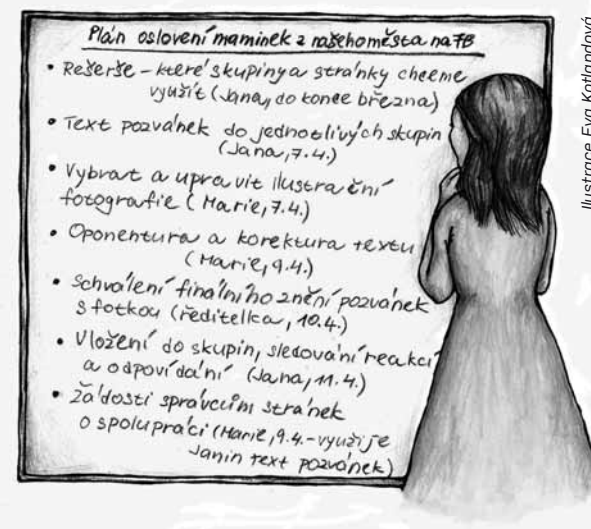 Plán oslovení maminek z našeho města na FB
• Rešerše – které skupiny a stránky chceme
využít (Jana, do konce března)
• Text pozvánek do jednotlivých skupin
(Jana, 7.4.)
• Vybrat a upravit ilustrační
fotografie (Marie, 7.4.)
• Oponentura a korektura textu
(Marie, 9.4.)
• Schválení finálního znění pozvánek
s fotkou (ředitelka, 10.4.)
• Vložení do skupin, sledování reakcí
a odpovídání (Jana, 11.4.)
• Žádosti správcům stránek
o spolupráci (Marie, 9.4. – využije
Janin text pozvánek)
Ilustrace Eva Kotlandová